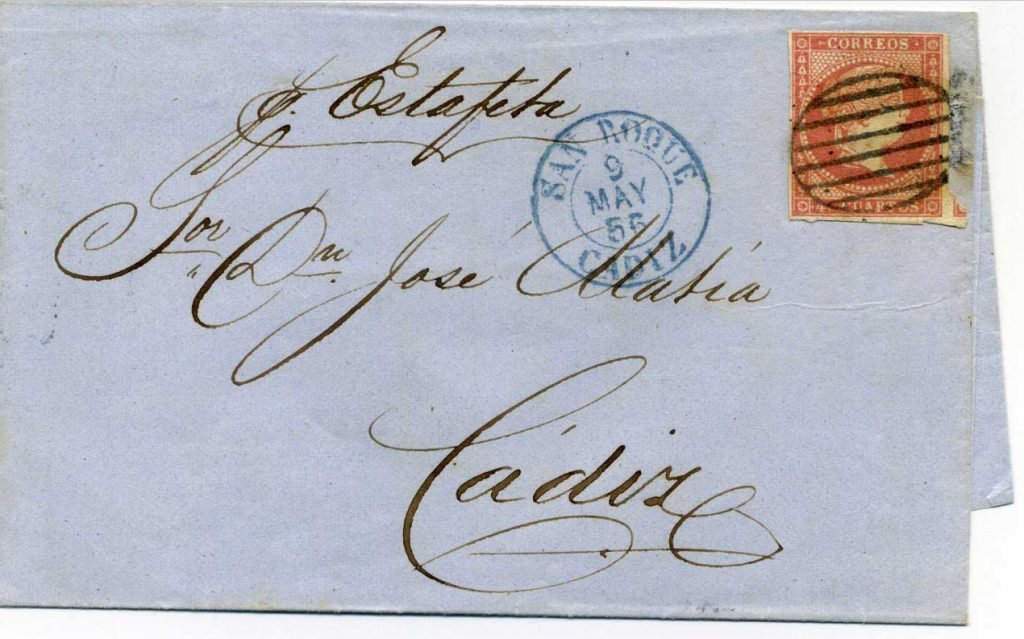 CORREOS
4 CUARTOS
p. Estafeta
SAN ROQUE
9
MAY
56
CADIZ
Sor. Dn. José Matia
Cádiz